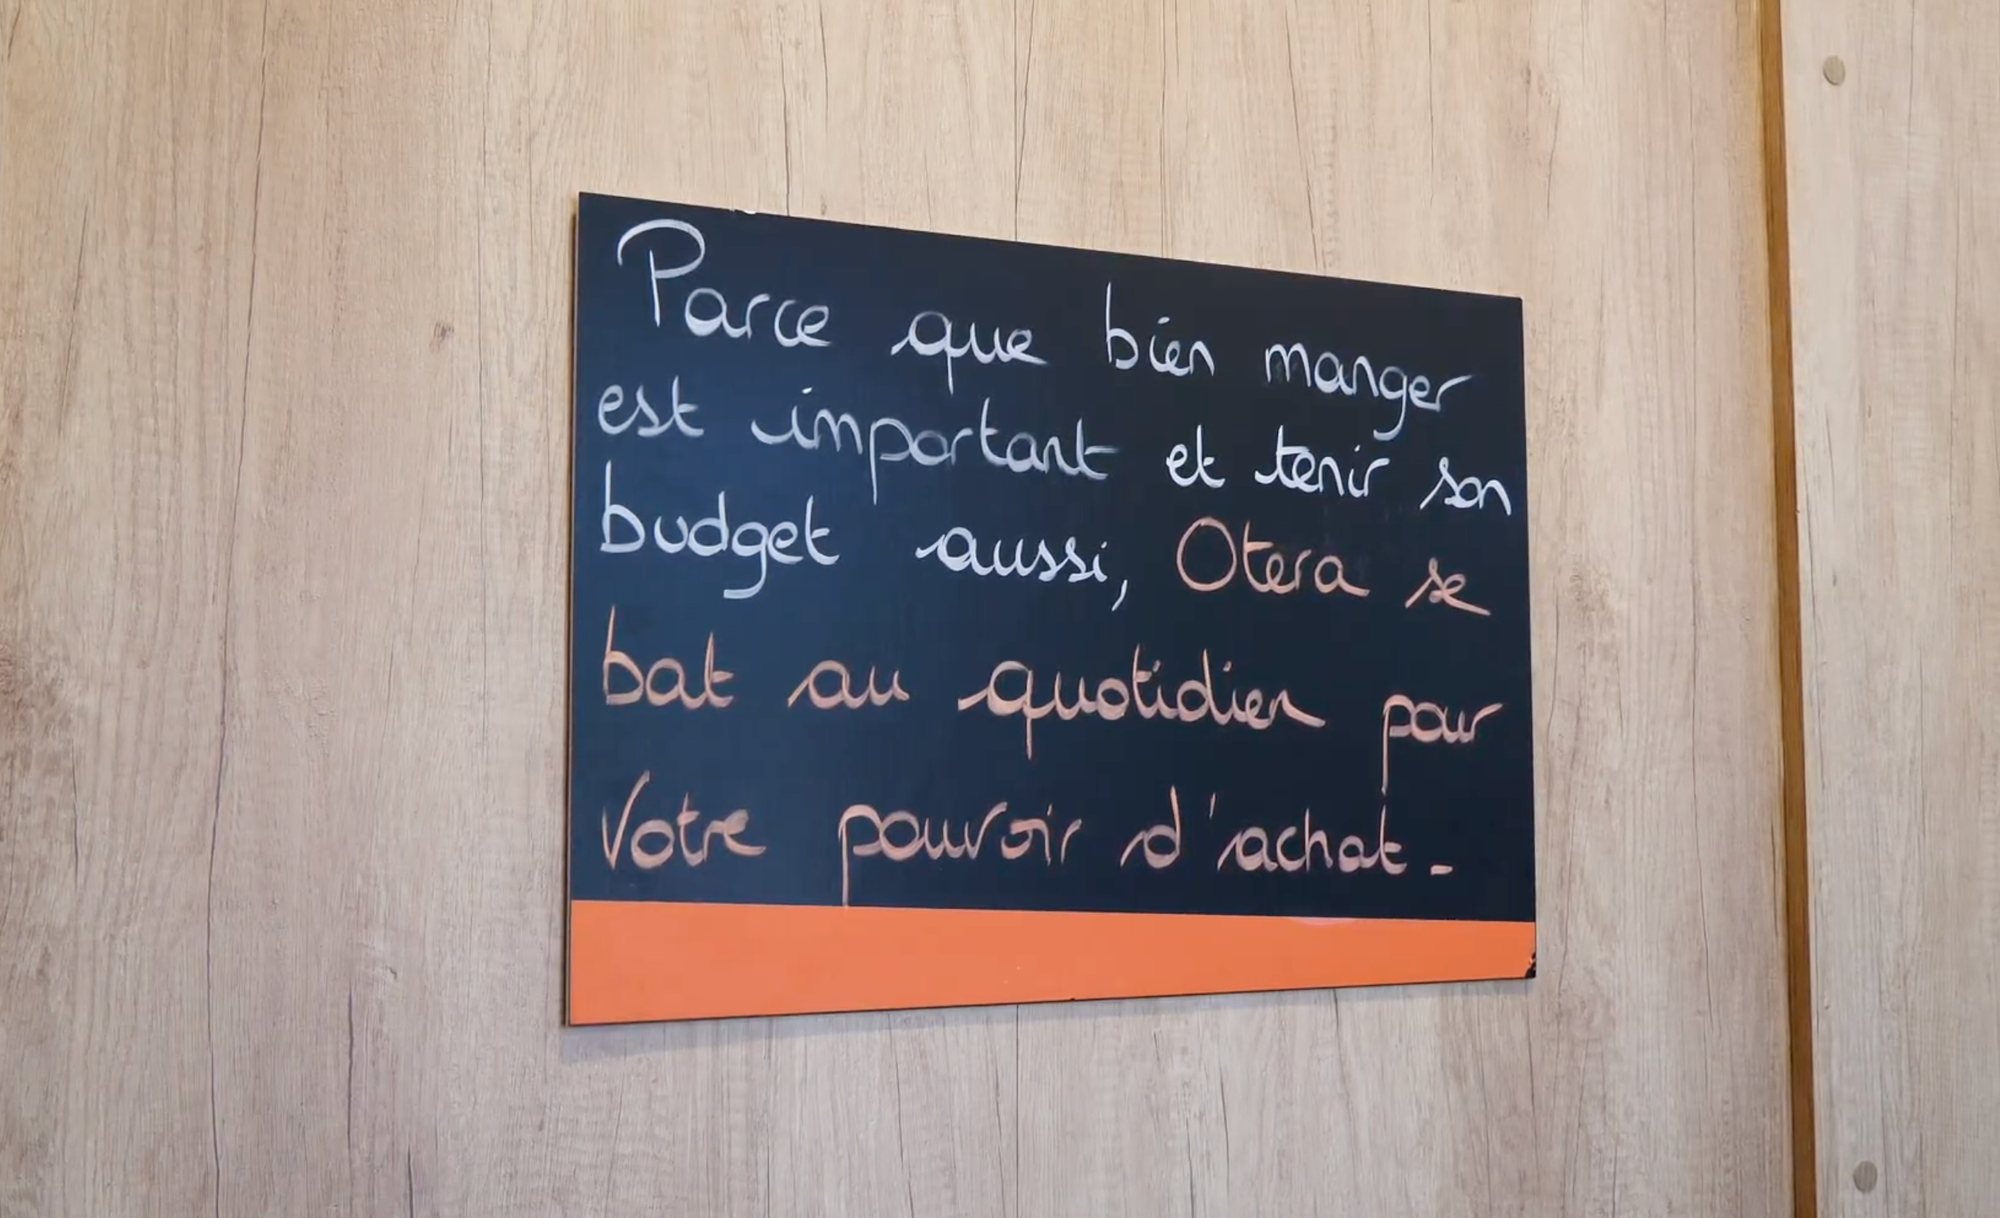 Parce que bien manger
est important et tenir son
budget aussi, Otera se
bat au quotidien pour
Votre pouvoir d'achat.